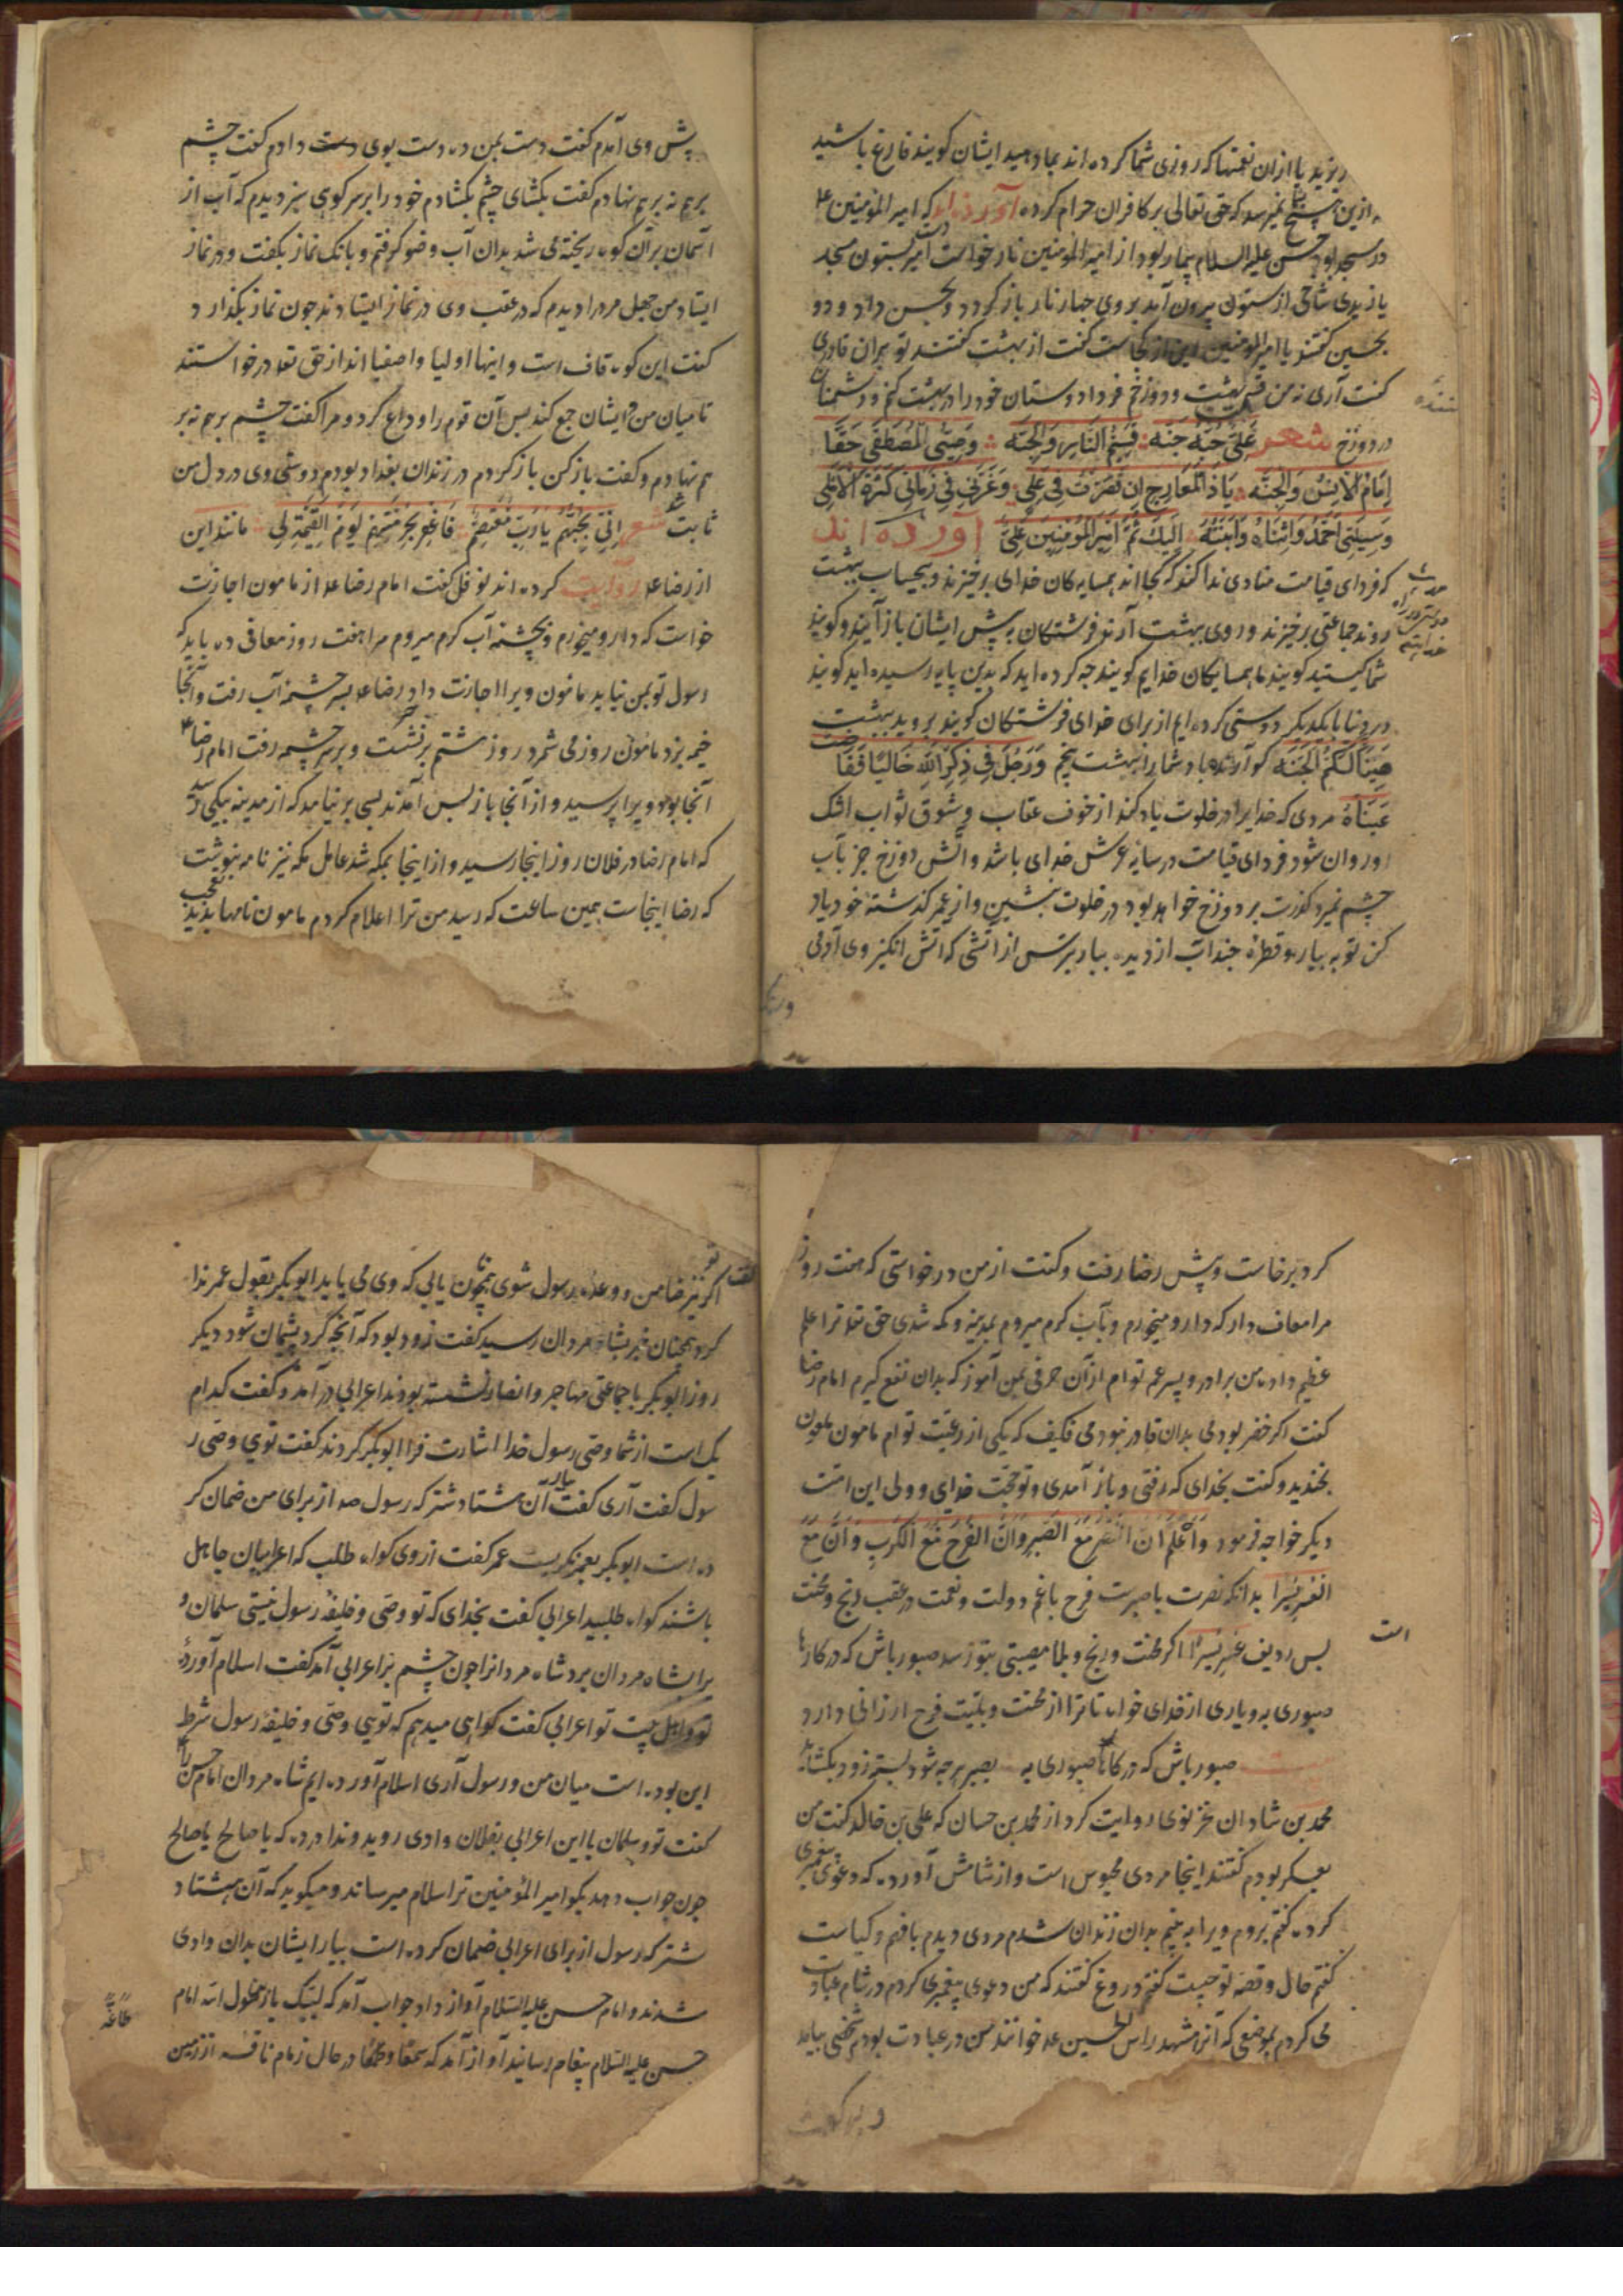 ریزید یا ازان نعمتها که روزی شما کرده اند بما دهید ایشان کویند فارغ باشید
ازین هیچ نمیرسد که حق تعالی بر کافران حرام کرده آورده اند که امیر المؤمنین
در مسجد بود حسن علیه السلام بیمار بود از امیر المؤمنین نار خواست امیر بستون مسجد
یازیدی شاخی از ستون بیرون آمد بر وی جهار نار باز کرد دو بحسن داد و دو
بحسین گفتند یا امیر المؤمنین این از کجاست گفت از بهشت گفتند تو بران قادری
گفت آری نه من قسیم بهشت و دوزخم فردا دوستان خود را در بهشت کنم و دشمنان
در دوزخ شعر عَلِیٌّ حُبُّهُ جُنَّه قَسِیمُ النّارِ وَالجَنَّه وَصِیُّ المُصطَفی حَقًّا
اِمَامُ الاِنسِ وَالجِنَّه یَا ذَا المَعَارِجِ اِن قَصَّرتُ فِی عَمَلِی وَغَرَّنِی فِی زَمَانِی کَثرَةُ الاَمَلِ
وَسِیلَتِی اَحمَدُ وَابنَاهُ وَابنَتُهُ اِلَیكَ ثُمَّ اَمِیرُ المُؤمِنِینَ عَلِی آورده اند
که فردای قیامت منادی ندا کند که کجا اند همسایه کان خدای برخیزند و بیحساب ببهشت
روند جماعتی برخیزند و روی ببهشت آرند فرشتکان به پیش ایشان باز آیند و کویند
شما کیستید کویند ما همسایکان خدایم کویند چه کرده اید که بدین پایه رسیده اید کویند
در دنیا با یکدیکر دوستی کرده ایم از برای خدای فرشتکان کویند بروید ببهشت
هَنِیئًا لَکُمُ الجَنَّه کوارنده باد شما را بهشت پنجم وَرَجُلٌ فِی ذِکرِ اللّهِ خَالِیًا فَفَاضَت
عَینَاهُ مردی که خدایرا در خلوت یاد کند از خوف عقاب و شوق ثواب اشک
او روان شود فردای قیامت در سایه عرش خدای باشد و آتش دوزخ جز بآب
چشم نمیرد گذرت بر دوزخ خواهد بود در خلوت بنشین و از عمر کذشته خود یاد
کن توبه بیار و قطرهٔ چند آب از دیده ببار بترس از آتشی که آتش انکیز وی آدمی
پیش وی آمدم گفت دست بمن ده دست بوی دادم گفت چشم
برهم نه برهم نهادم گفت بکشای چشم بکشادم خود را بر سر کوهی سبز دیدم که آب از
آسمان بران کوه ریخته می شد بدان آب وضو کرفتم و بانک نماز بکفت و در نماز
ایستاد من چهل مرد را دیدم که در عقب وی در نماز ایستادند چون نماز بکذارد
گفت این کوه قاف است و اینها اولیا و اصفیا اند از حق تعا درخواستند
تا میان من و ایشان جمع کند پس آن قوم را وداع کرد و مرا گفت چشم برهم نه بر
هم نهادم و گفت باز کن باز کردم در زندان بغداد بودم دوستی وی در دل من
ثابت شد شعر اِنِّی بِحُبِّهِم یَا رَبِّ مُعتَصِمٌ فَاغفِر بِحُرمَتِهِم یَومَ القِیمَةِ لِی مانند این
از رضا علا روایت کرده اند نوفل گفت امام رضا علا از مامون اجازت
خواست که دارو میخورم و بچشمه آب کرم میروم مرا هفت روز معافی ده باید که
رسول تو بمن نیاید مامون ویرا اجازت داد رضا علا بسر چشمه آب رفت و آنجا
خیمه بزد مامون روز می شمرد روز هشتم برنشست و بر سر چشمه رفت امام رضا ع
آنجا بود ویرا پرسید و از آنجا باز پس آمدند بسی بر نیامد که از مدینه پیکی رسید
که امام رضا در فلان روز اینجا رسید و از اینجا بمکه شد عامل مکه نیز نامه بنوشت
که رضا اینجاست همین ساعت که رسید من ترا اعلام کردم مامون نامها بدید تعجب
کرد برخاست و پیش رضا رفت و گفت از من درخواستی که هفت روز
مرا معاف دار که دارو میخورم و بآب کرم میروم بمدینه و مکه شدی حق تعا ترا علم
عظیم داد من برادر و پسر عم توام از آن حرفی بمن آموز که بدان نفع کیرم امام رضا
گفت اکر خضر بودمی بدان قادر نبودمی فکیف که یکی از رعیت توام مامون ملعون
بخندید و گفت بخدای که رفتی و باز آمدی و تو حجت خدای و ولی این امت
دیکر خواجه فرمود وَاعلَم اَنَّ النَّصرَ مَعَ الصَّبرِ وَاَنَّ الفَرَحَ مَعَ الکَربِ وَاَنَّ مَعَ
العُسرِ یُسرًا بدانکه نصرت با صبرست فرح با غم دولت و نعمت در عقب رنج و محنت
است
پس ردیف عُسر یُسرًا اکر محنت و رنج و بلا مصیبتی بتو رسد صبور باش که در کارها
صبوری به و یاری از خدای خواه تا ترا از محنت و بلیت فرح ارزانی دارد
بیت صبور باش که در کارها صبوری به بصبر هرچه شود بسته زود بکشاید
محمد بن شادان روایت کرد از محمد بن حسان که علی بن خالد گفت من
بعسکر بودم گفتند اینجا مردی محبوس است و از شامش آورده که دعوی پیغمبری
کرده گفتم بروم ویرا به بینم بدان زندان شدم مردی دیدم با فهم و کیاست
گفتم حال و قصه تو چیست گفت دروغ گفتند که من دعوی پیغمبری کردم در شام عبادت
می کردم بموضعی که آنرا مشهد راس الحسین علا خوانند من در عبادت بودم شخصی بیامد
اکر نیز ضامن و وعده رسول شوی همچنان یابی که وی می یابد ابوبکر بقول عمر ندا
کرد همچنان خبر بشاه مردان رسید گفت زود بود که آنچه کرد پشیمان شود دیکر
روز ابوبکر با جماعتی مهاجر و انصار نشسته بودند اعرابی درآمد و گفت کدام
یک است از شما وصی رسول خدا اشارت فرا ابوبکر کردند گفت توی وصی ر
سول گفت آری گفت بیار آن هشتاد شتر که رسول صه از برای من ضمان کر
ده است ابوبکر بعمر نکریست عمر گفت ازوی کواه طلب که اعرابیان جاهل
باشند کواه طلبید اعرابی گفت بخدای که تو وصی و خلیفهٔ رسول نیستی سلمان و
یرا بشاه مردان برد شاه مردانرا چون چشم بر اعرابی آمد گفت اسلام آوردهٔ
تو و اهل بیت تو اعرابی گفت کواهی میدهم که تویی وصی و خلیفهٔ رسول شرط
این بوده است میان من و رسول آری اسلام آورده ایم شاه مردان امام حسن را
گفت تو و سلمان با این اعرابی بفلان وادی روید و ندا درده که یا صالح یا صالح
چون جواب دهد بگو امیر المؤمنین ترا سلام میرساند و میکوید که آن هشتاد
شتر که رسول از برای اعرابی ضمان کرده است بیار ایشان بدان وادی
شدند و امام حسن علیه السلام آواز داد جواب آمد که لبیک یا بن رسول الله امام
حسن علیه السلام پیغام رسانید آواز آمد که سمعًا و طاعةً در حال زمام ناقه از زمین